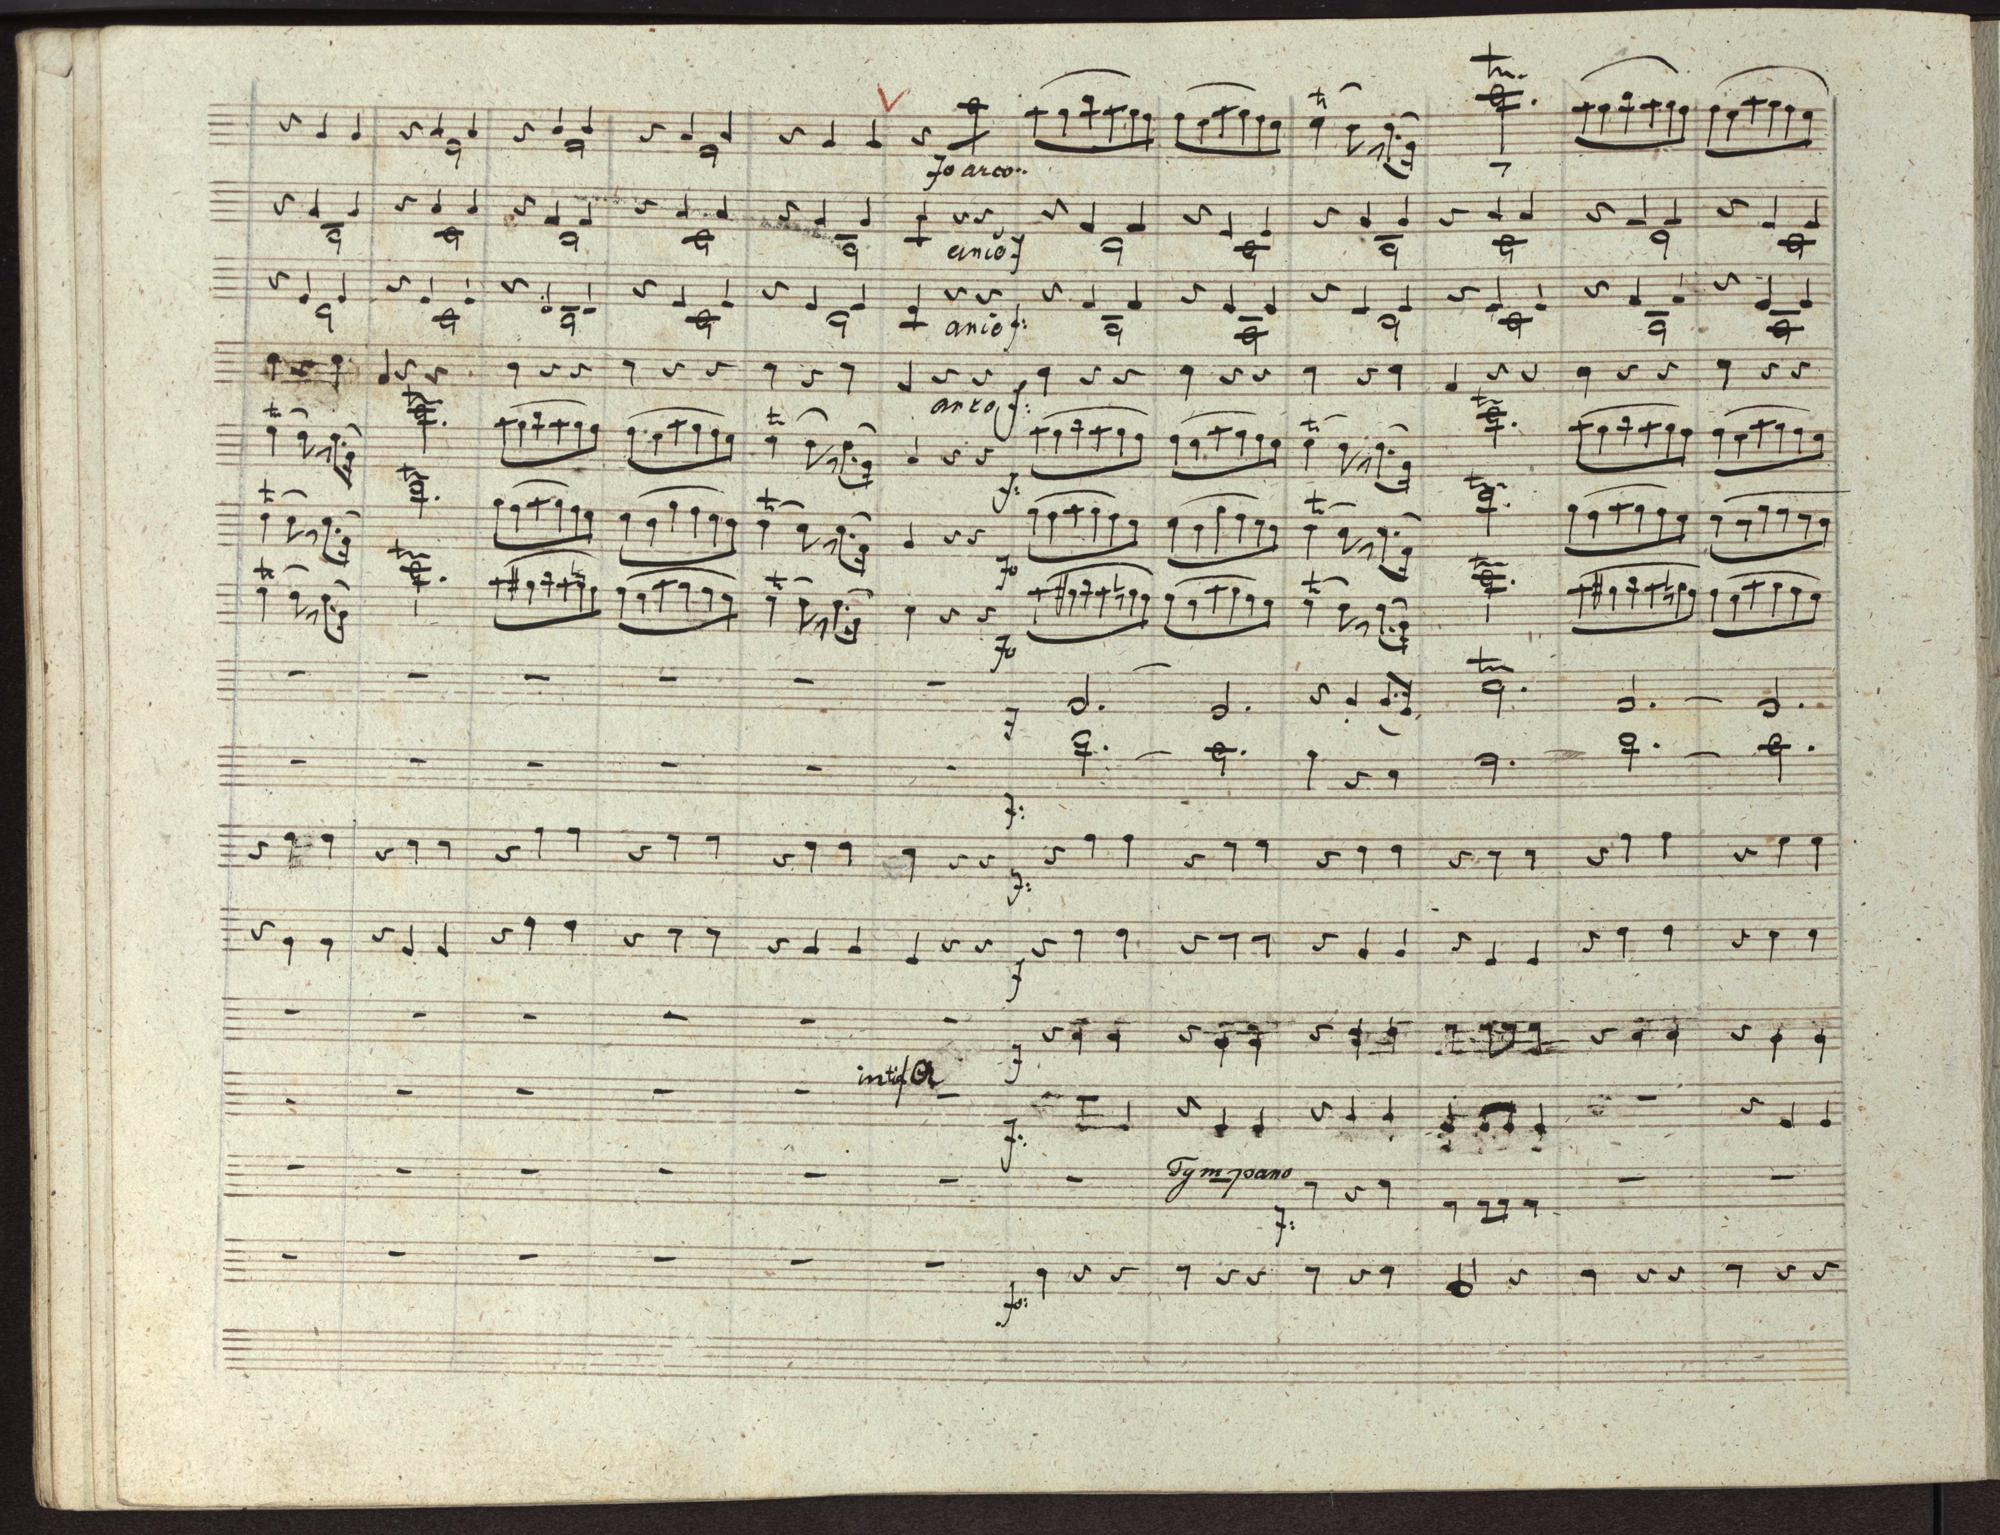 fo arco
arco f
arco f:
arco f:
f:
fo
fo
f
f:
f:
f
f
f:
Tympano
f:
fo: